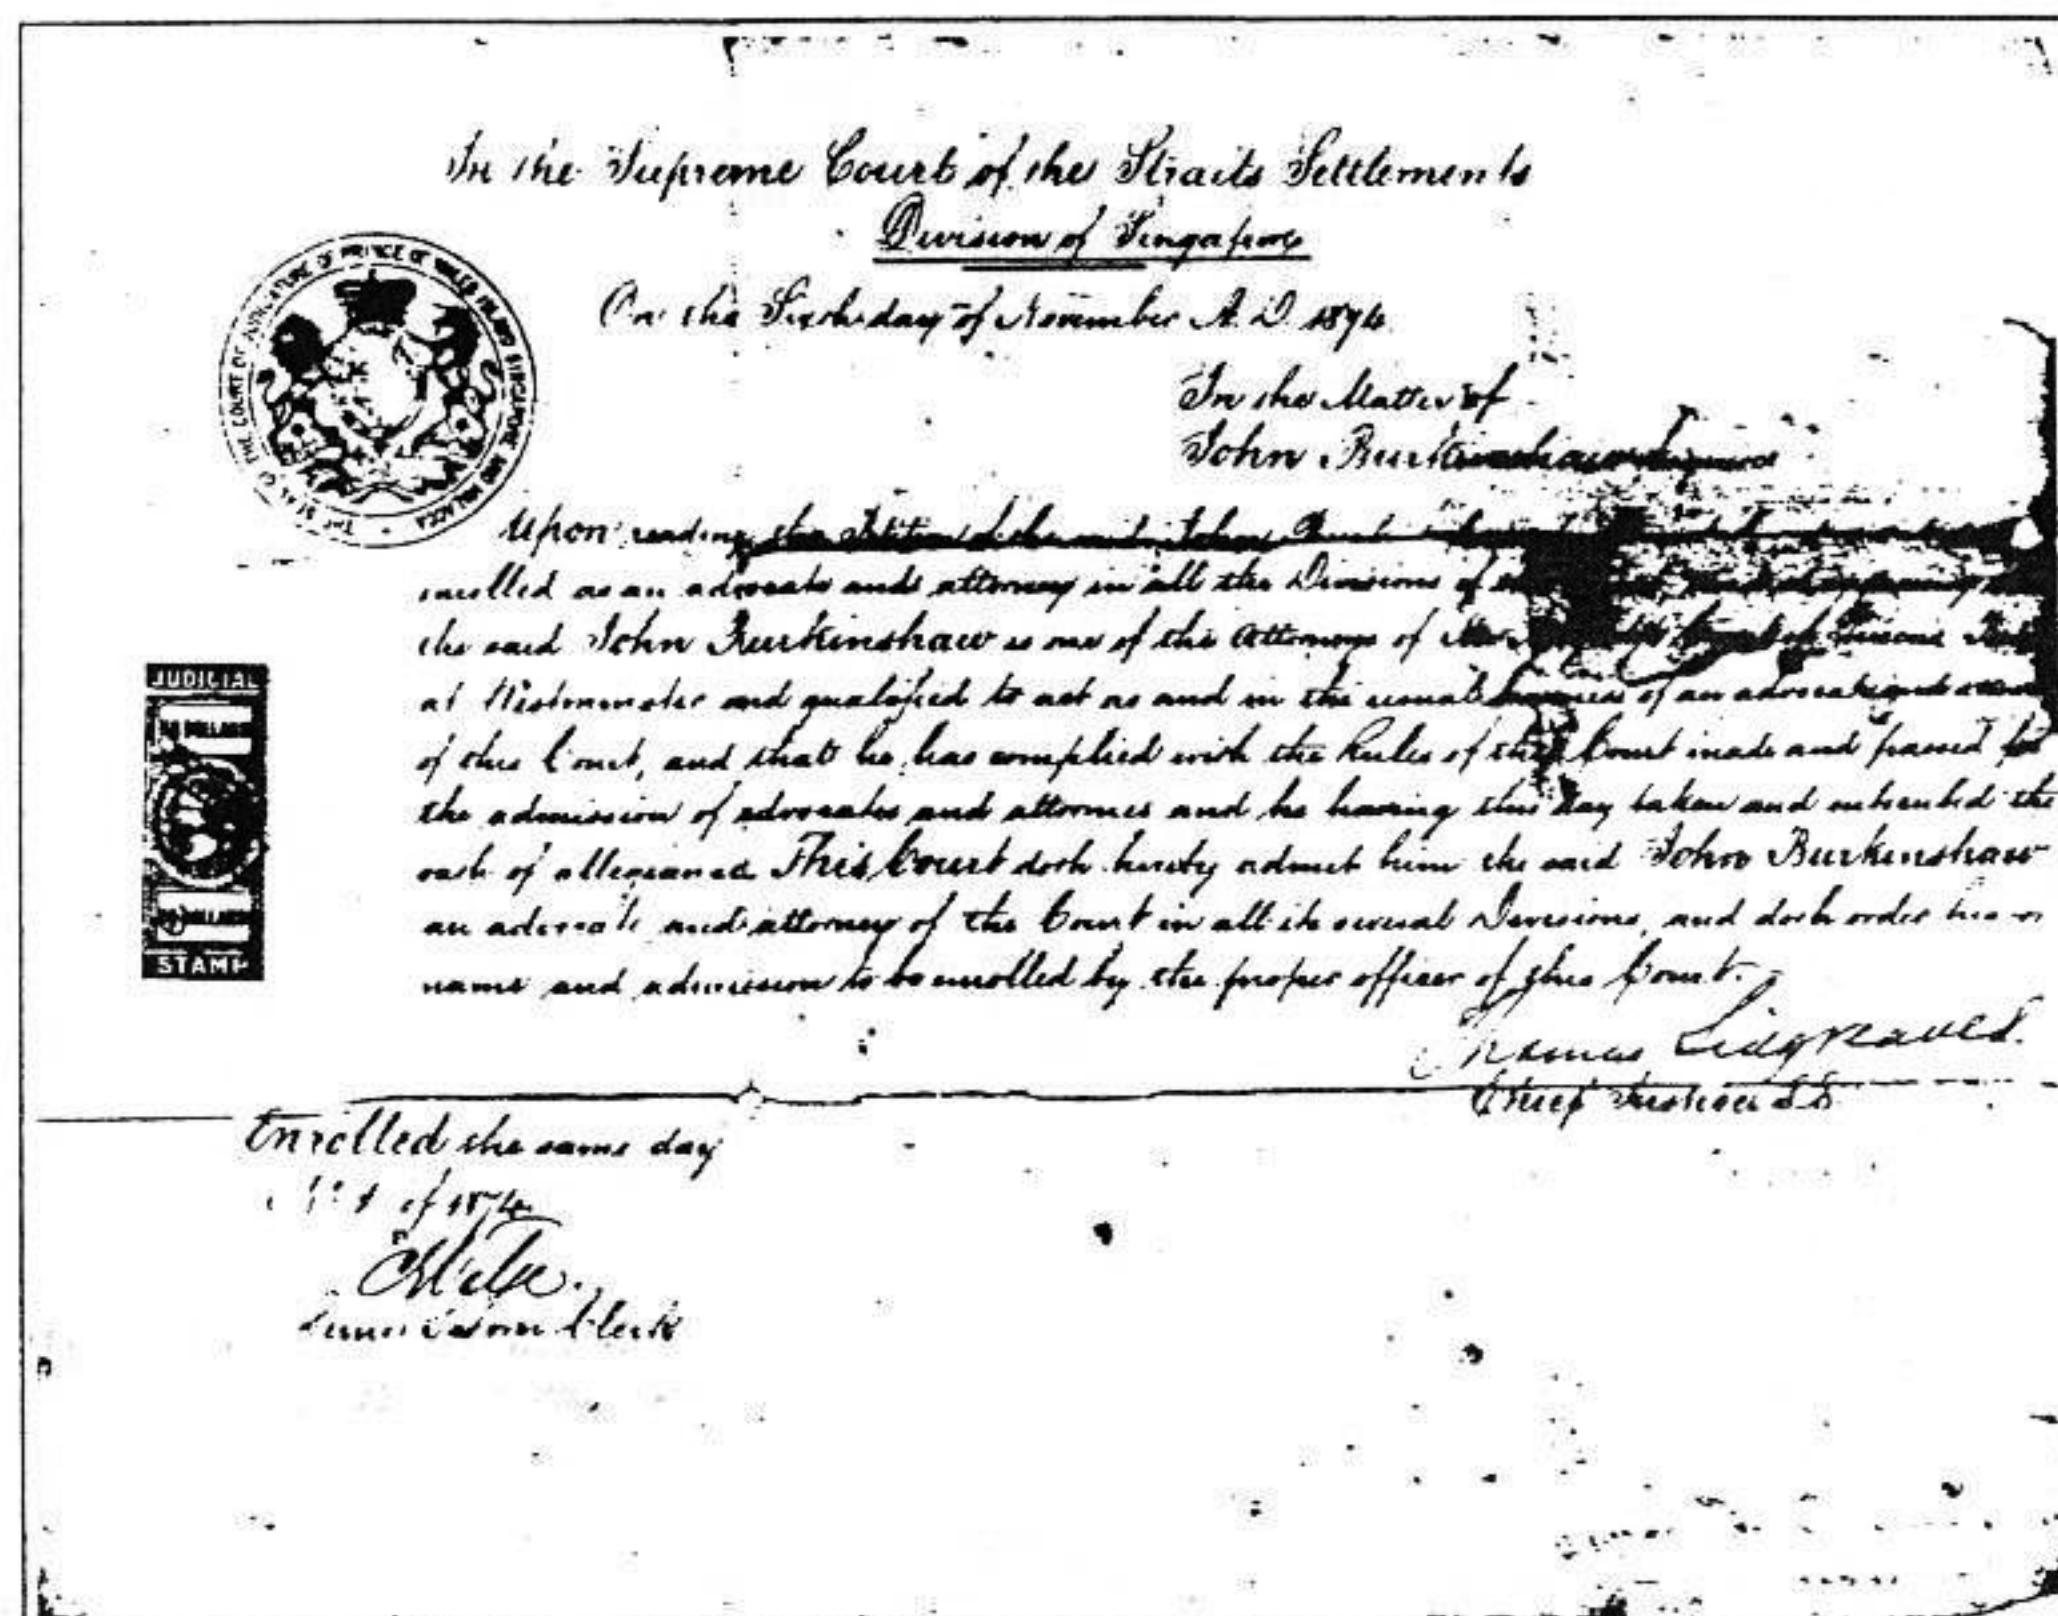 In the Supreme Court of the Straits Settlements
Division of Singapore
On the Sixth day of November A.D. 1874
In the Matter of
John Burkinshaw
THE SEAL OF THE COURT OF JUDICATURE OF PRINCE OF WALES ISLAND SINGAPORE AND MALACCA
Upon reading the Petition of the said John
enrolled as an advocate and attorney in all the Divisions of appearing
the said John Burkinshaw is one of the Attorneys of
at Westminster and qualified to act as and in the usual business of an advocate and
of this Court, and that he has complied with the Rules of this Court made and passed for
the admission of advocates and attornies and he having this day taken and subscribed the
oath of allegiance This Court doth hereby admit him the said John Burkinshaw
an advocate and attorney of the Court in all its several Divisions, and doth order his
name and admission to be enrolled by the proper officer of this Court.
JUDICIAL
STAMP
Thomas Sidgreaves.
Chief Justice S.S.
Enrolled the same day
of 1874
Sworn Clerk